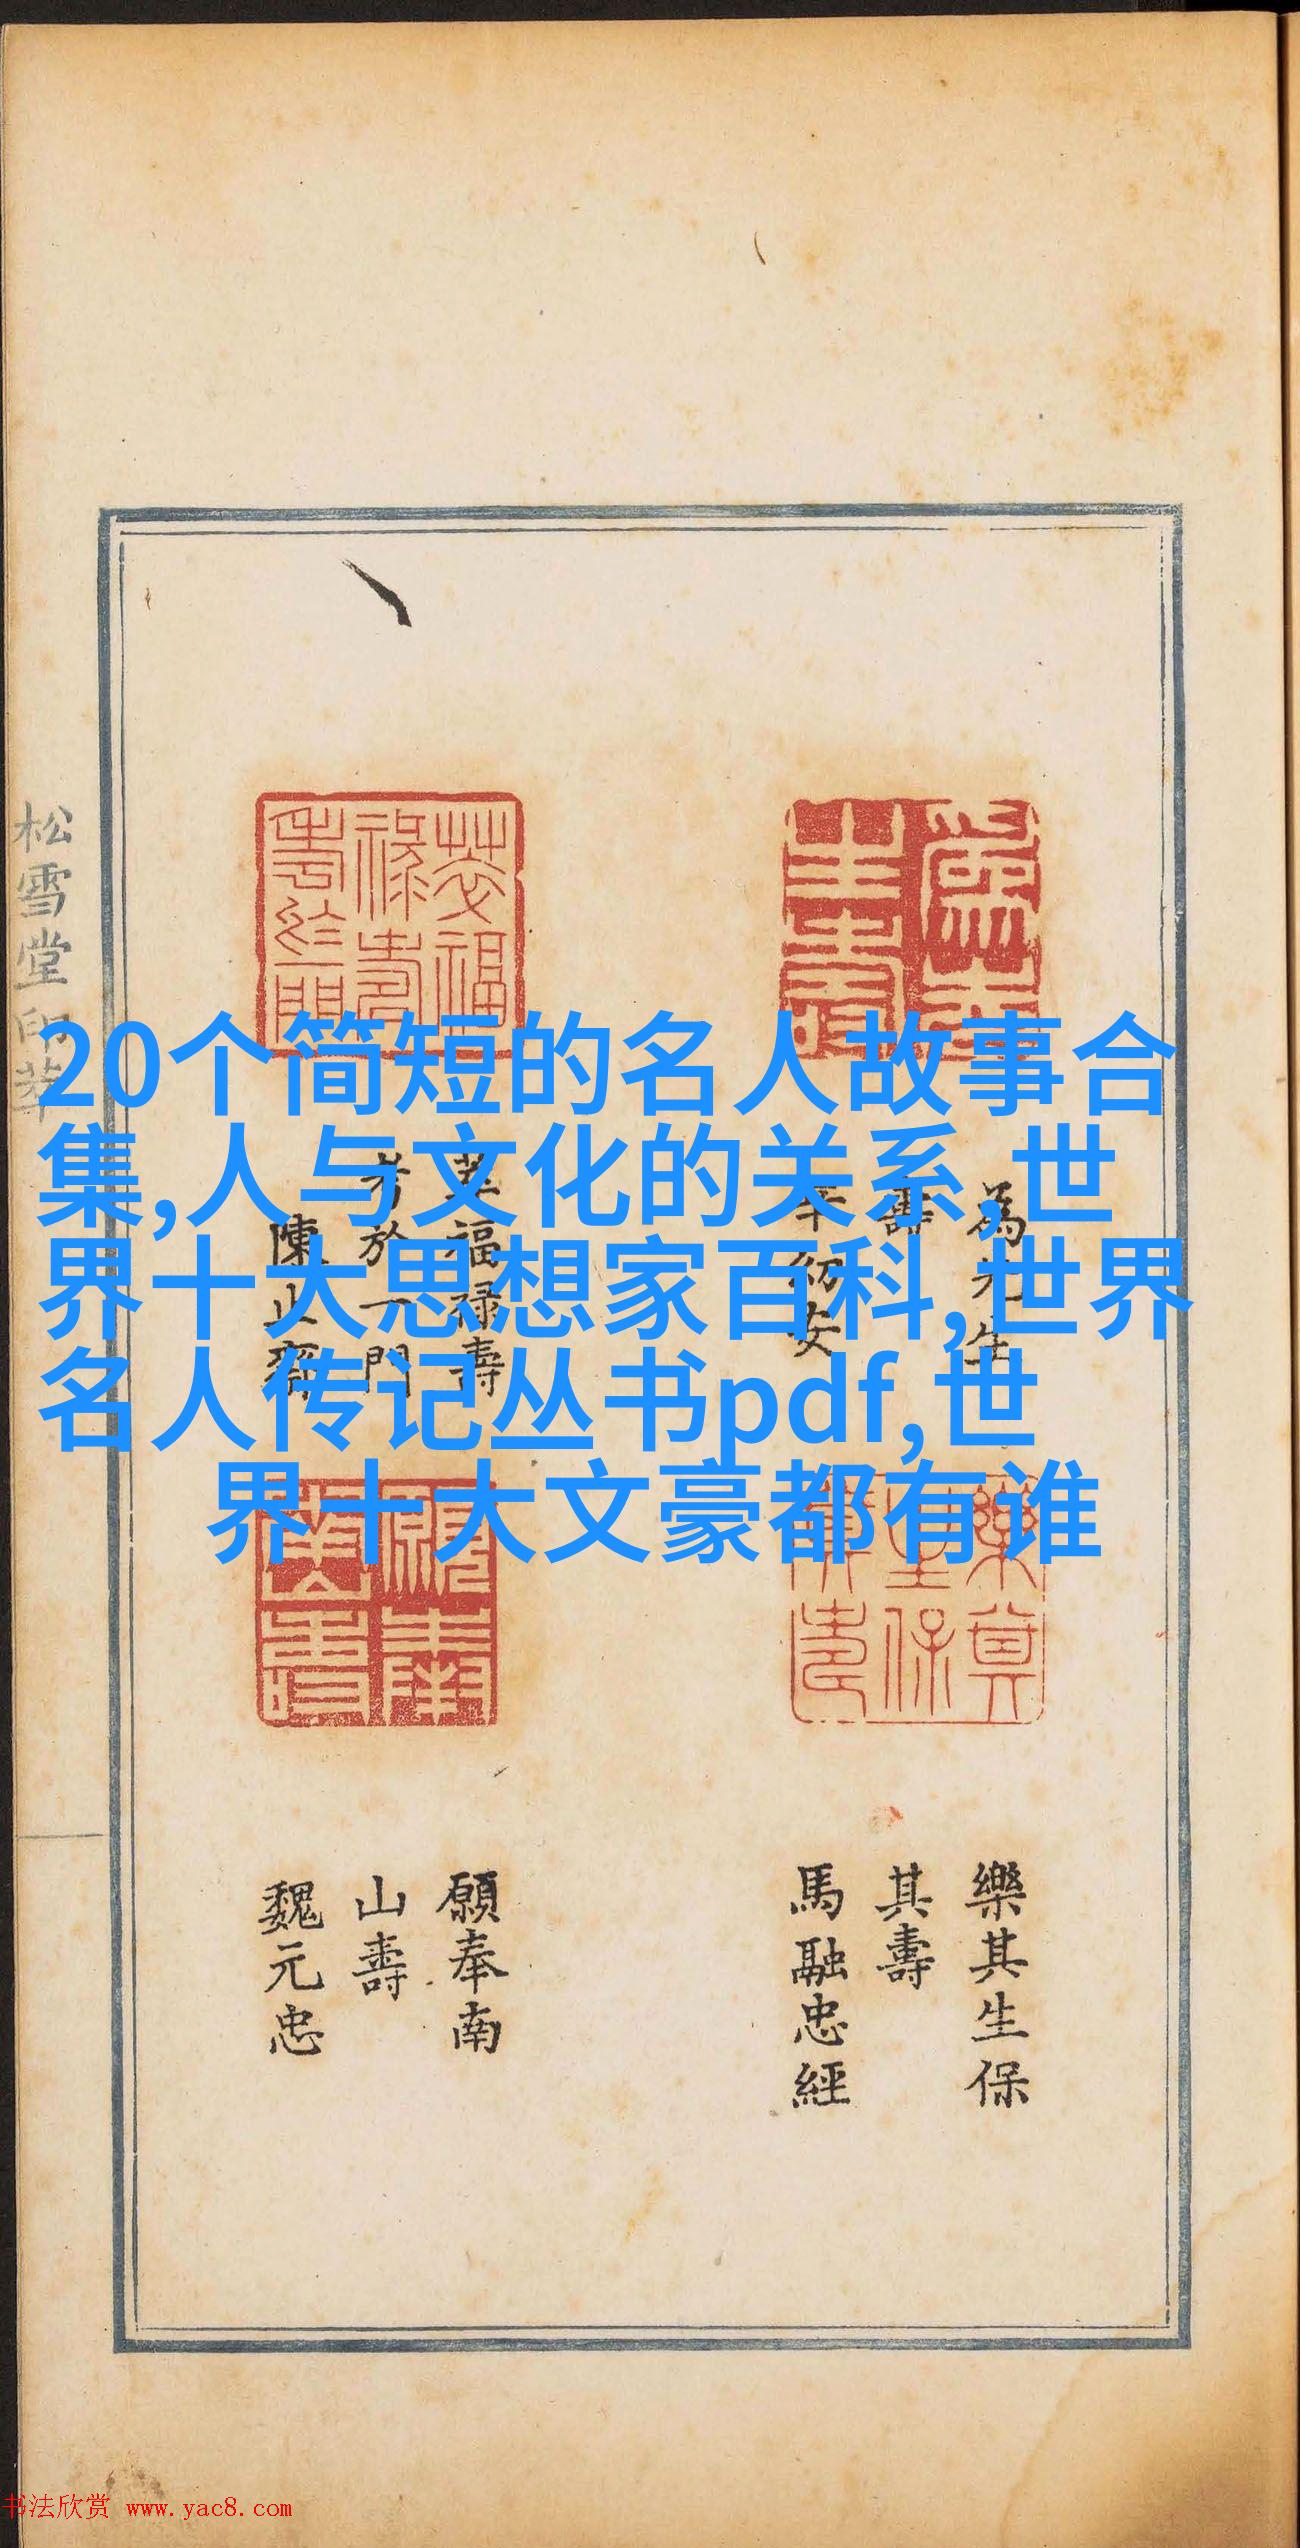 20个简短的名人故事合
集,人与文化的关系,世
界十大思想家百科,世界
名人传记丛书pdf,世
界十大文豪都有谁
松雪堂印萃
為先生
壽
萃福祿壽
考於一門
陳止齋
樂其生保
其壽
馬融忠經
願奉南
山壽
魏元忠
书法欣赏 www.yac8.com